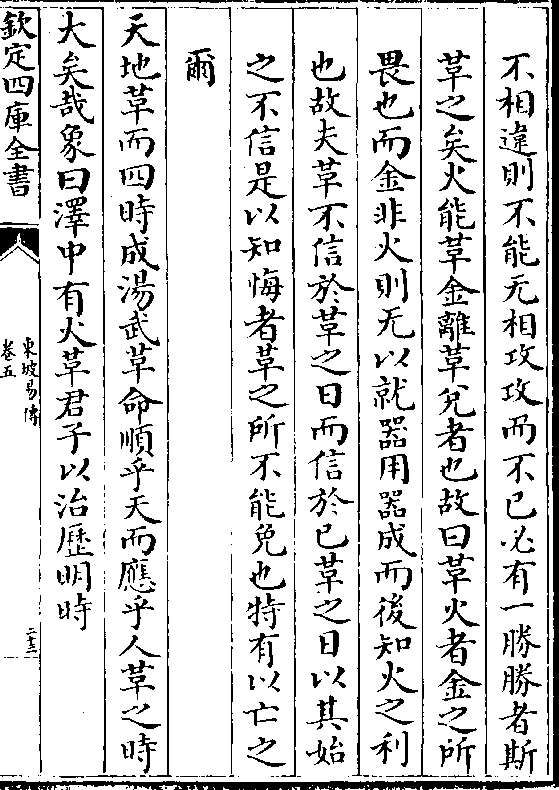 不相違則不能无相攻攻而不已必有一勝勝者斯
革之矣火能革金離革兌者也故曰革火者金之所
畏也而金非火則无以就器用器成而後知火之利
也故夫革不信於革之日而信於已革之日以其始
之不信是以知悔者革之所不能免也特有以亡之
爾
天地革而四時成湯武革命順乎天而應乎人革之時
大矣哉象曰澤中有火革君子以治歷明時
欽定四庫全書
東坡易傳
卷五
二十三